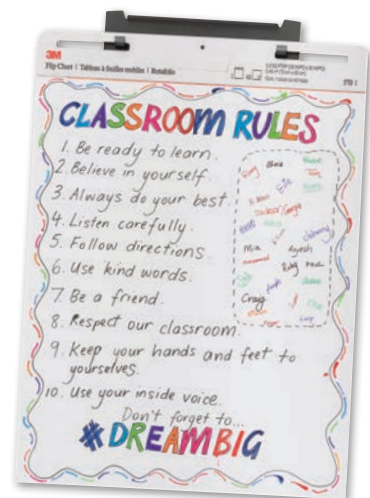 3M
Flip Chart | Tableau à feuilles mobiles | Rotafolio
CLASSROOM RULES
1. Be ready to learn.
2. Believe in yourself.
3. Always do your best.
4. Listen carefully.
5. Follow directions.
6. Use kind words.
7. Be a friend.
8. Respect our classroom.
9. Keep your hands and feet to
yourselves.
10. Use your inside voice.
Don't forget to...
#DREAMBIG
Mia
Craig